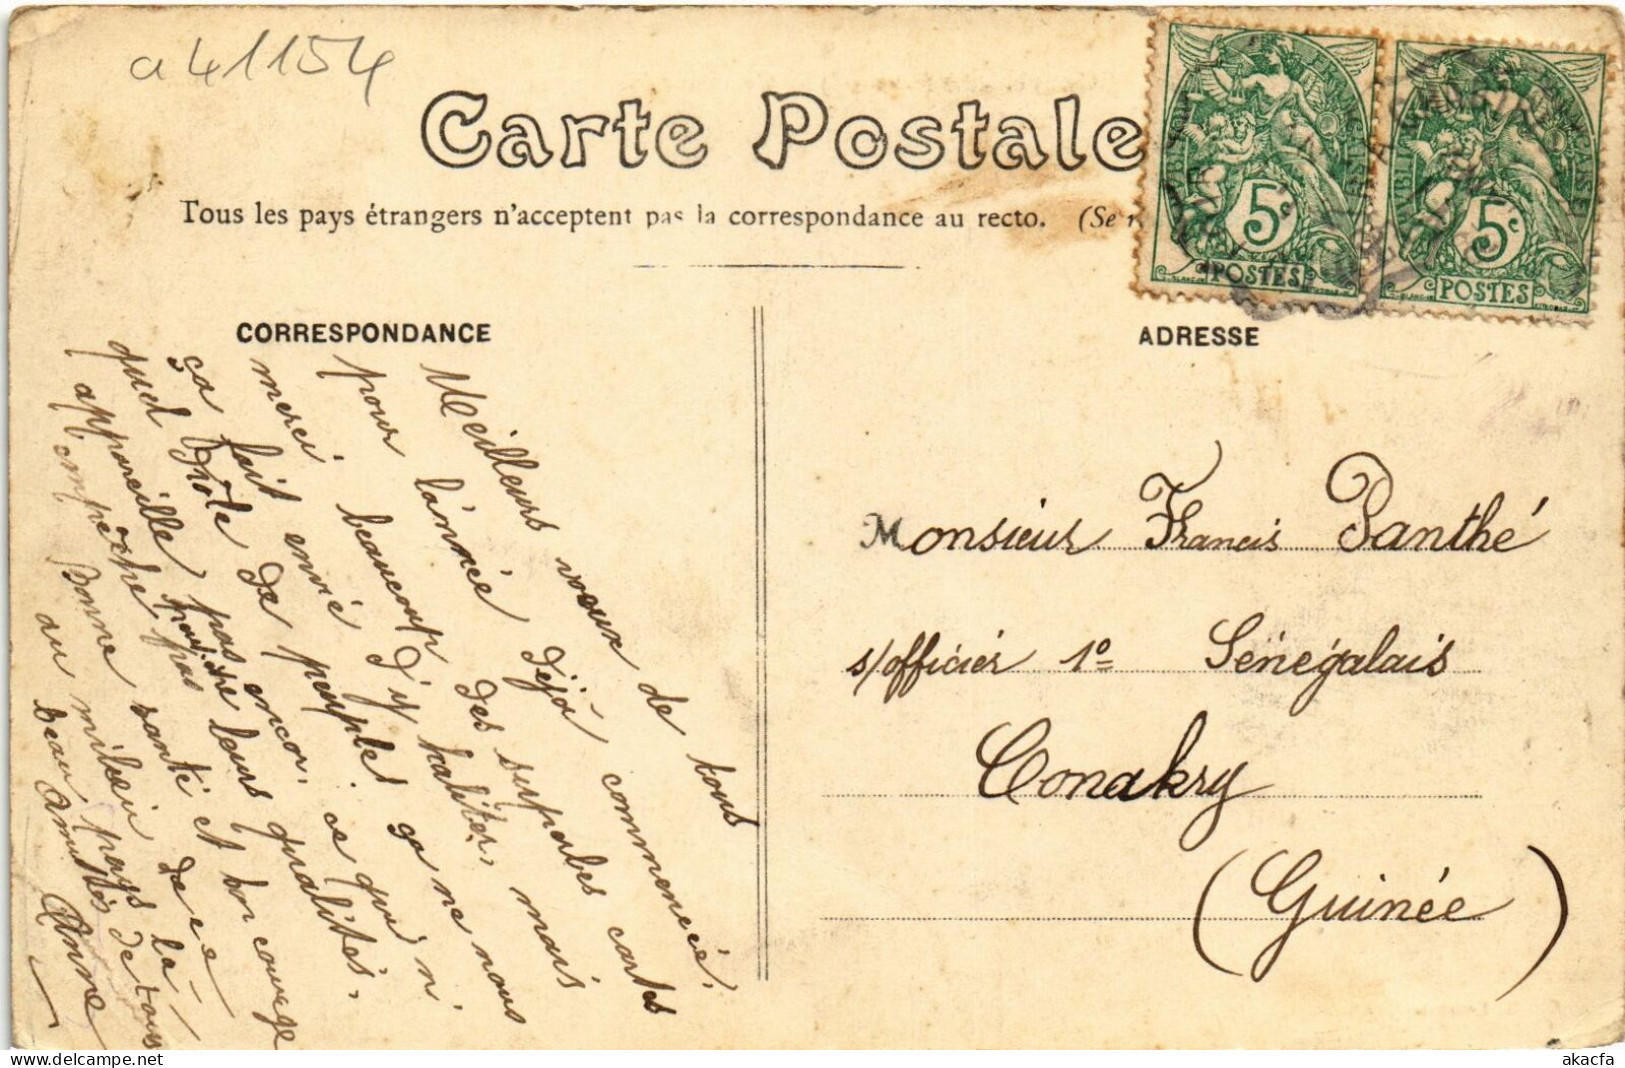 a 41154
Carte Postale
Tous les pays étrangers n'acceptent pas la correspondance au recto. (Se
5c
POSTES
5c
POSTES
CORRESPONDANCE
ADRESSE
Meilleurs voeux de tous
pour l'année déjà commencée.
merci beaucoup des superbes cartes
ça fait envie d'y habiter, mais
quel drôle de peuple! ça ne nous
appareille pas encor, ce qui n'
empêche pas leurs qualités.
Bonne santé et bon courage
au milieu de ce
beau pays là
Amitiés de tous
Anne
Monsieur Francis Panthé
s/officier 1o Sénégalais
Conakry
(Guinée)
akacfa